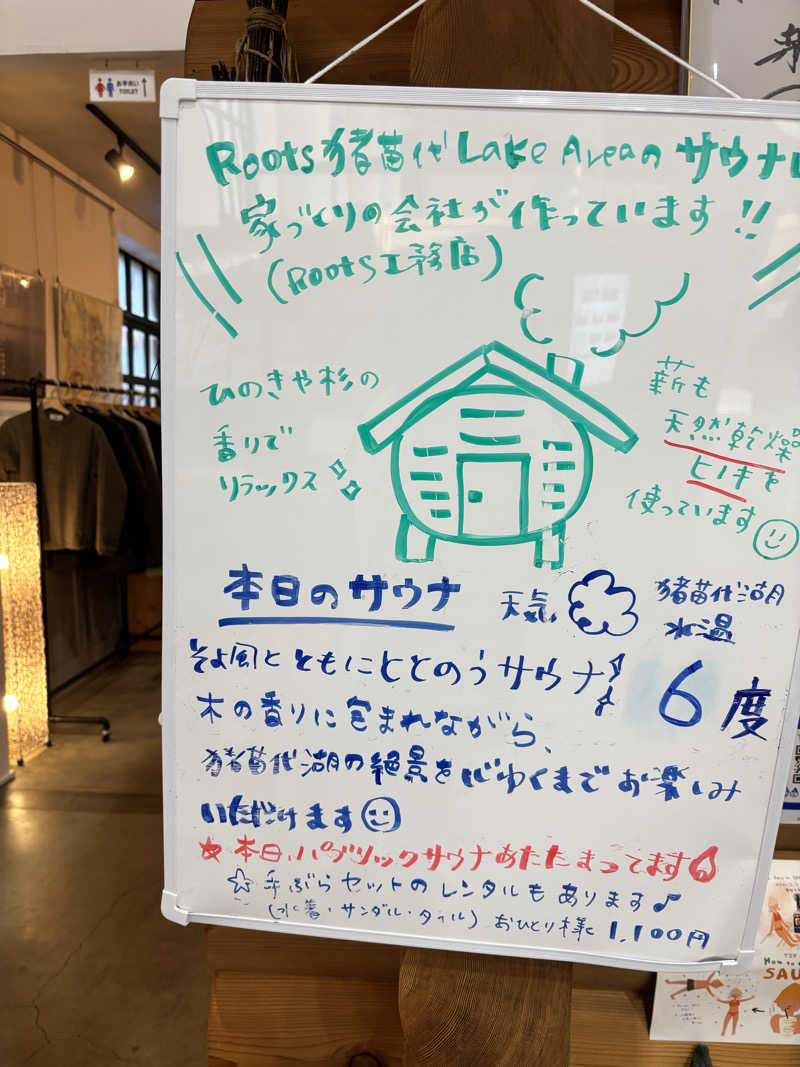 お手洗い
TOILET
Roots猪苗代Lake Areaのサウナは
家づくりの会社が作っています!!
(Roots工務店)
ひのきや杉の
香りで
リラックス
薪も
天然乾燥
ヒノキを
使っています
本日のサウナ
天気
猪苗代湖
水温
6度
そよ風とともにととのうサウナ
木の香りに包まれながら、
猪苗代湖の絶景を心ゆくまでお楽しみ
いただけます
★本日、パブリックサウナあたたまってます
☆手ぶらセットのレンタルもあります♪
(水着・サンダル・タオル)おひとり様 1,100円
How to
SAU